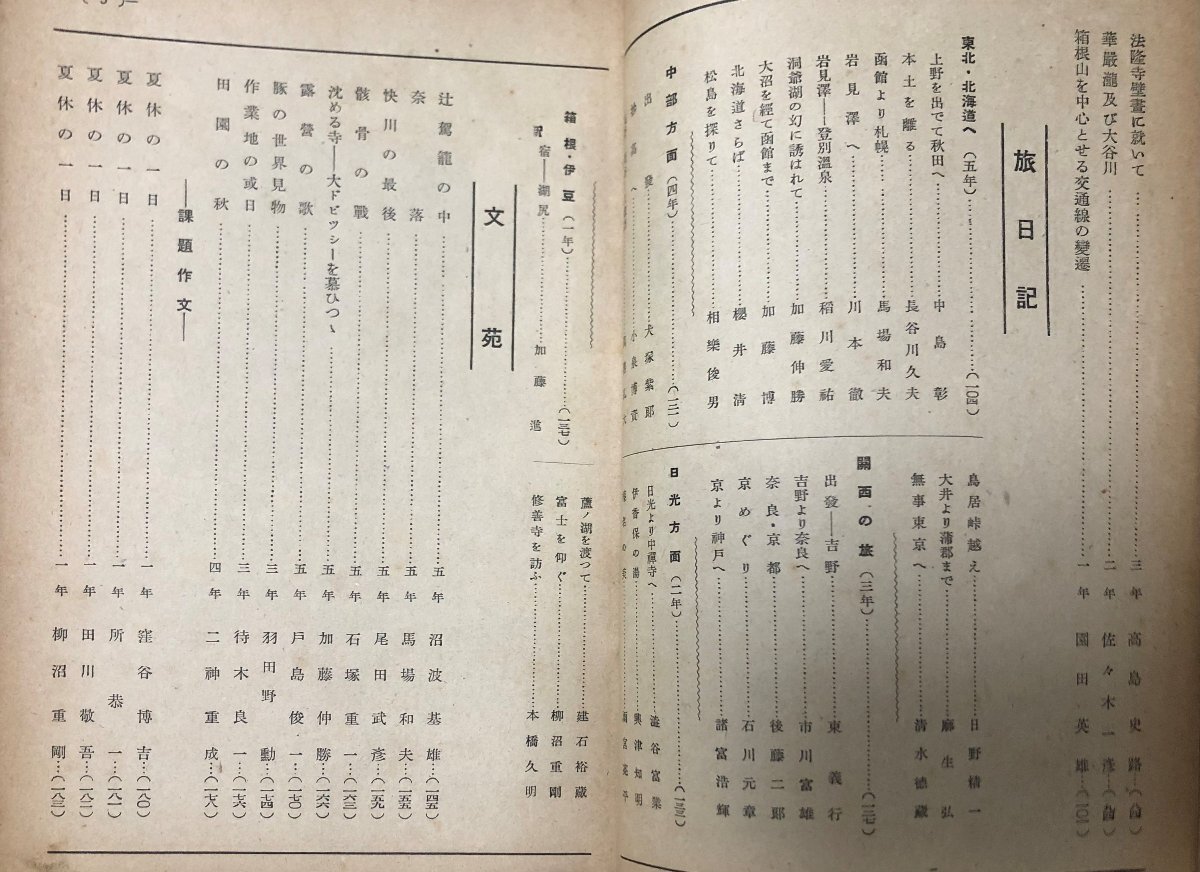 法隆寺壁畫に就いて……三年 高島史路
華嚴瀧及び大谷川……二年 佐々木一彦
箱根山を中心とせる交通線の變遷……一年 園田英雄…(一〇一)
旅日記
東北・北海道へ(五年)……(一〇四)
上野を出でて秋田へ……中島彰
本土を離る……長谷川久夫
函館より札幌……馬場和夫
岩見澤へ……川本徹
岩見澤――登別溫泉……稻川愛祐
洞爺湖の幻に誘はれて……加藤伸勝
大沼を經て函館まで……加藤博
北海道さらば……櫻井清
松島を探りて……相樂俊男
中部方面(四年)……(一二一)
出發……犬塚紫郎
へ……小泉博資
鳥居峠越え……日野精一
大井より蒲郡まで……麻生弘
無事東京へ……清水德藏
關西の旅(三年)……(一二七)
出發――吉野……東義行
吉野より奈良へ……市川富雄
奈良・京都……後藤二郎
京めぐり……石川元章
京より神戸へ……諸富浩輝
日光方面(二年)……(一三三)
日光より中禪寺へ……澁谷富業
伊香保の湯……興津知明
箱根・伊豆(一年)……(一三七)
宿――湖尻……加藤進
蘆ノ湖を渡つて……建石裕藏
富士を仰ぐ……柳沼重剛
修善寺を訪ふ……本橋久明
文苑
辻駕籠の中……五年 沼波基雄…(一四五)
奈落……五年 馬場和夫…(一五五)
快川の最後……五年 尾田武彥…(一五九)
骸骨の戰……五年 石塚重一…(一六三)
沈める寺――大ドビッシーを慕ひつゝ……五年 加藤伸勝…(一六六)
露營の歌……五年 戸島俊一…(一七〇)
豚の世界見物……三年 羽田野勳…(一七四)
作業地の或日……三年 待木良一…(一七六)
田園の秋……四年 二神重成…(一七八)
――課題作文――
夏休の一日……一年 窪谷博吉…(一八〇)
夏休の一日……一年 所恭一…(一八一)
夏休の一日……一年 田川敬吾…(一八二)
夏休の一日……一年 柳沼重剛…(一八三)